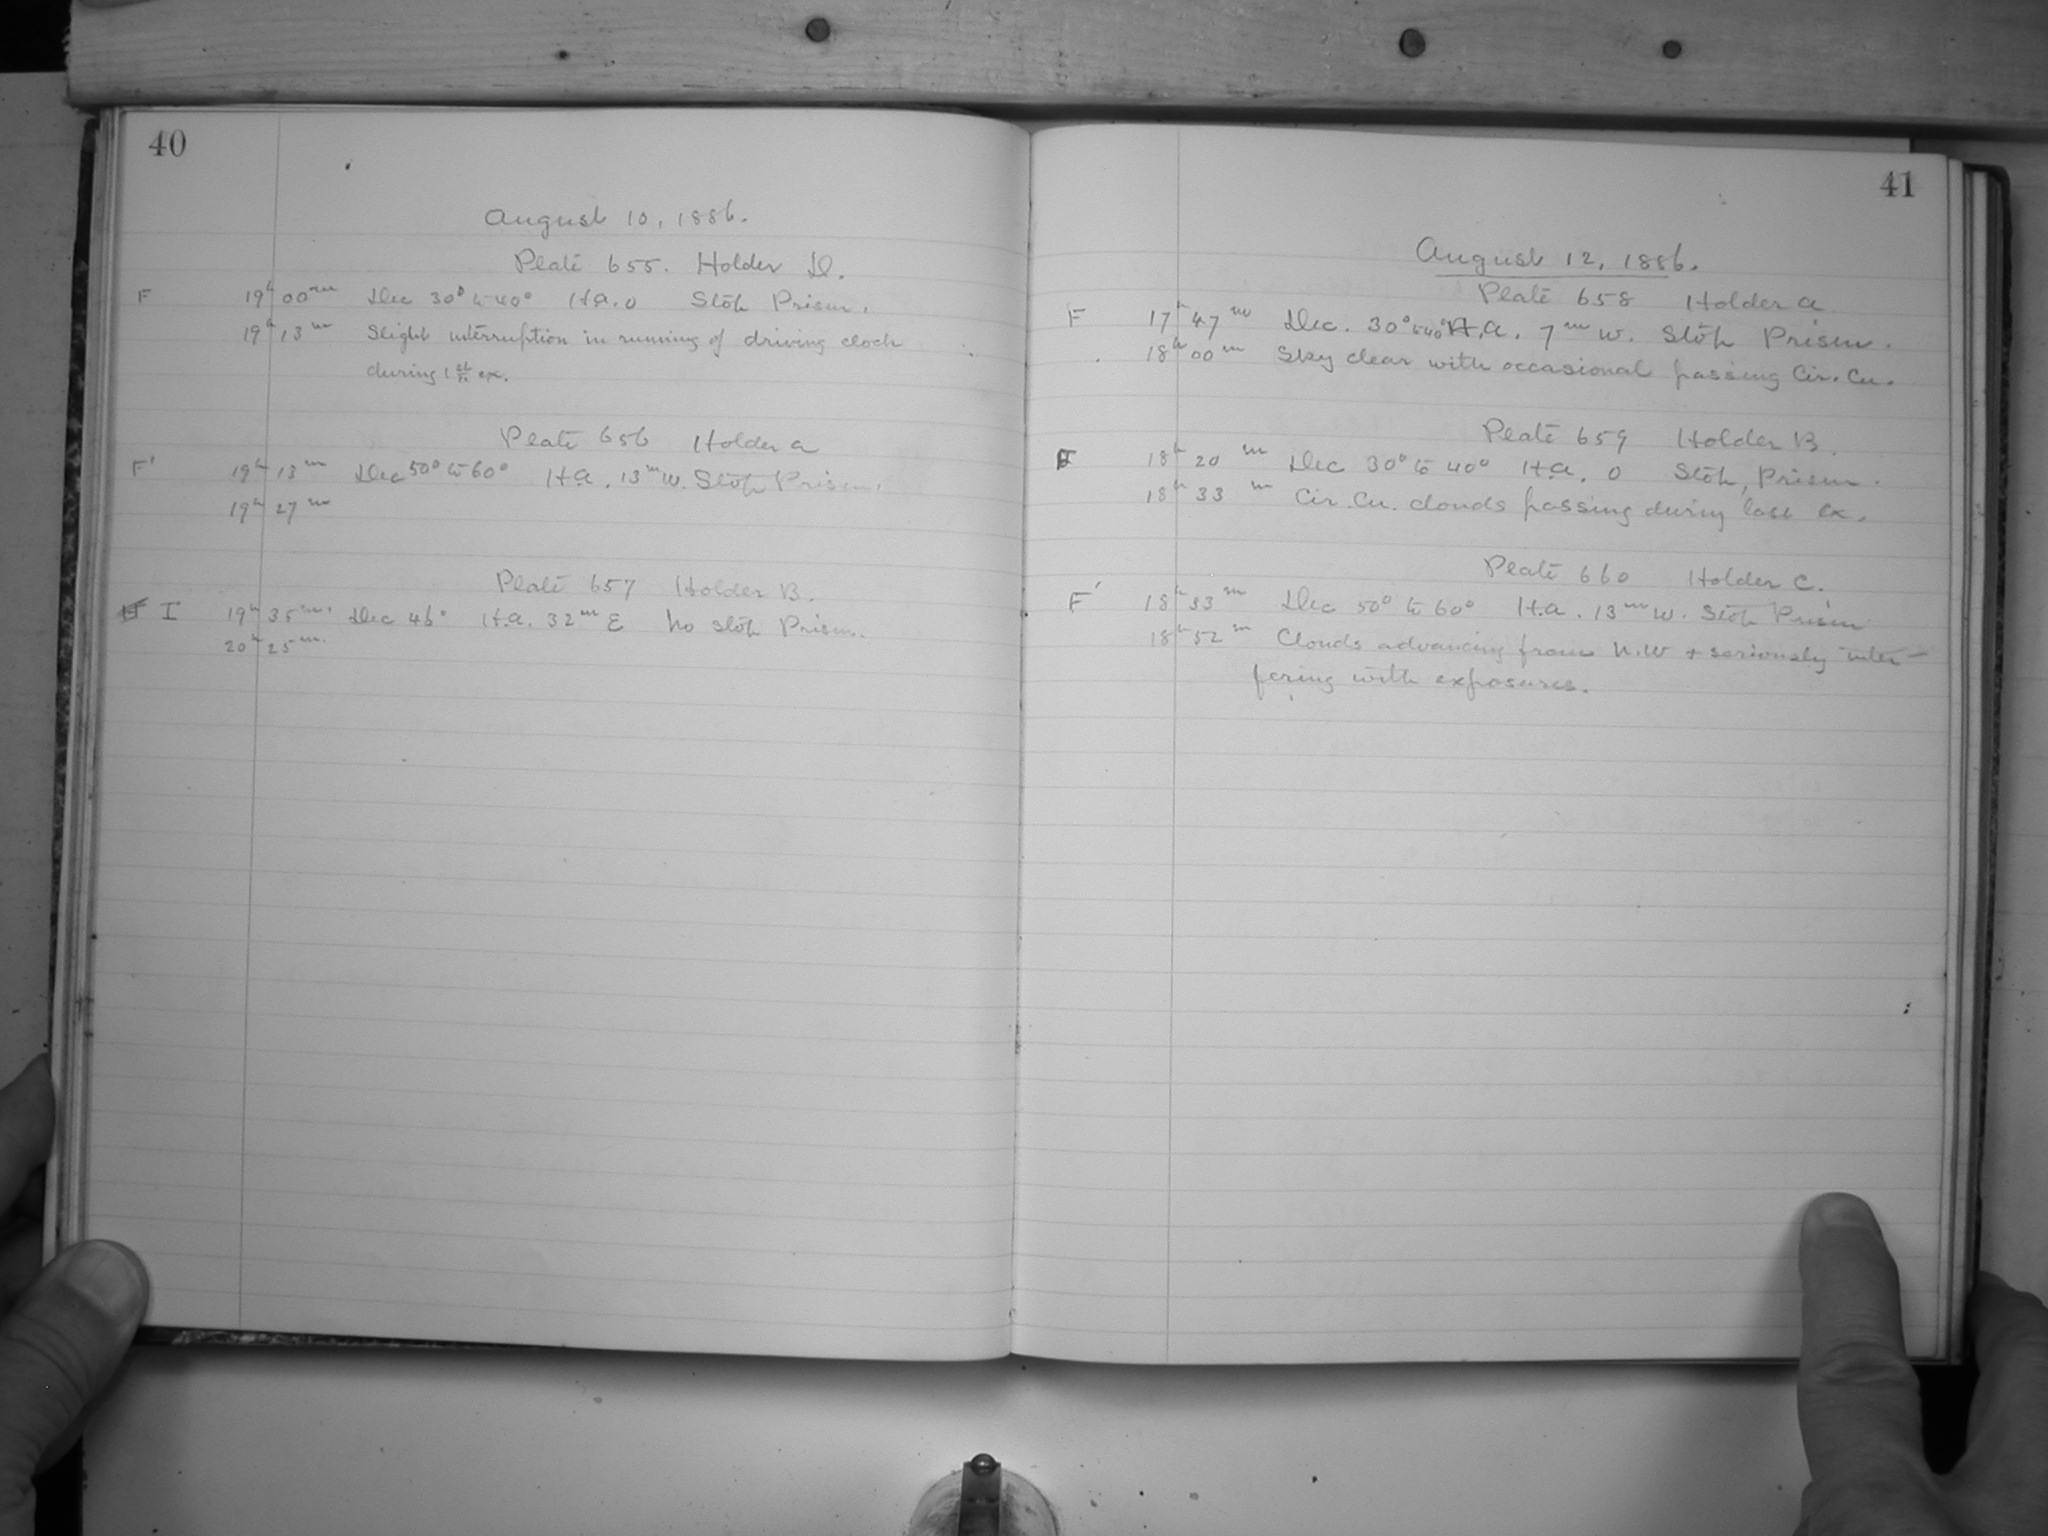 40
August 10, 1886.
Plate 655. Holder D.
F 19h 00m Dec 30° to 40° H.a. 0 Stop Prism.
19h 13m Slight interruption in running of driving clock
during 1st ex.
Plate 656 Holder a
F' 19h 13m Dec 50° to 60° H.a. 13m W. Stop Prism.
19h 27m
Plate 657 Holder B.
I 19h 35m. Dec 46° H.a. 32m E No stop Prism.
20h 25m.
41
August 12, 1886.
Plate 658 Holder a
F 17h 47m Dec. 30° to 40° H.a. 7m W. Stop Prism.
18h 00m Sky clear with occasional passing Cir. Cu.
Plate 659 Holder B.
F 18h 20m Dec 30° to 40° H.a. 0 Stop, Prism.
18h 33m Cir. Cu. clouds passing during last ex.
Plate 660 Holder C.
F' 18h 33m Dec 50° to 60° H.a. 13m W. Stop Prism
18h 52m Clouds advancing from N.W + seriously inter-
fering with exposures.